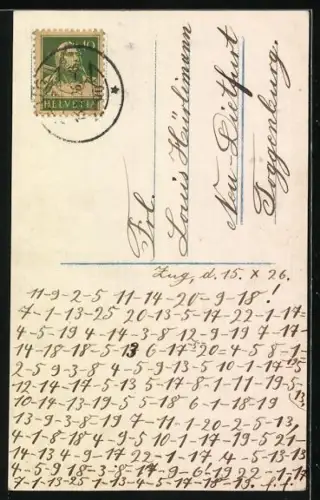 10
HELVETIA
Frl.
Louis Hürlimann
Neu Dietfurt
Toggenburg.
Zug, d. 15. X 26.
11-9-2-5 11-14-20-9-18!
7-1-13-25 20-13-5-17 22-1-17=
4-5-19 4-14-3-8 12-9-19 7-17-
14-18-18-5-13 6-17-20-4-5 8-1-
2-5 9-3-8 4-5-9-13-5 10-1-17-
12-14-17-5-13 5-17-8-1-11-19-5-
10-14-13-19-5-5 18 6-1-18-19
13-9-3-8-19 7-11-1-20-2-5-13,
4-1-8-18 4-9-5 10-1-17-19-5 21-
14-13 4-9-17 22-1-17 4-5-13-13
4-5-9 18-3-8-17-9-6-19 22-1-17
7-1-13-25 1-13-4-5-17-18-19.